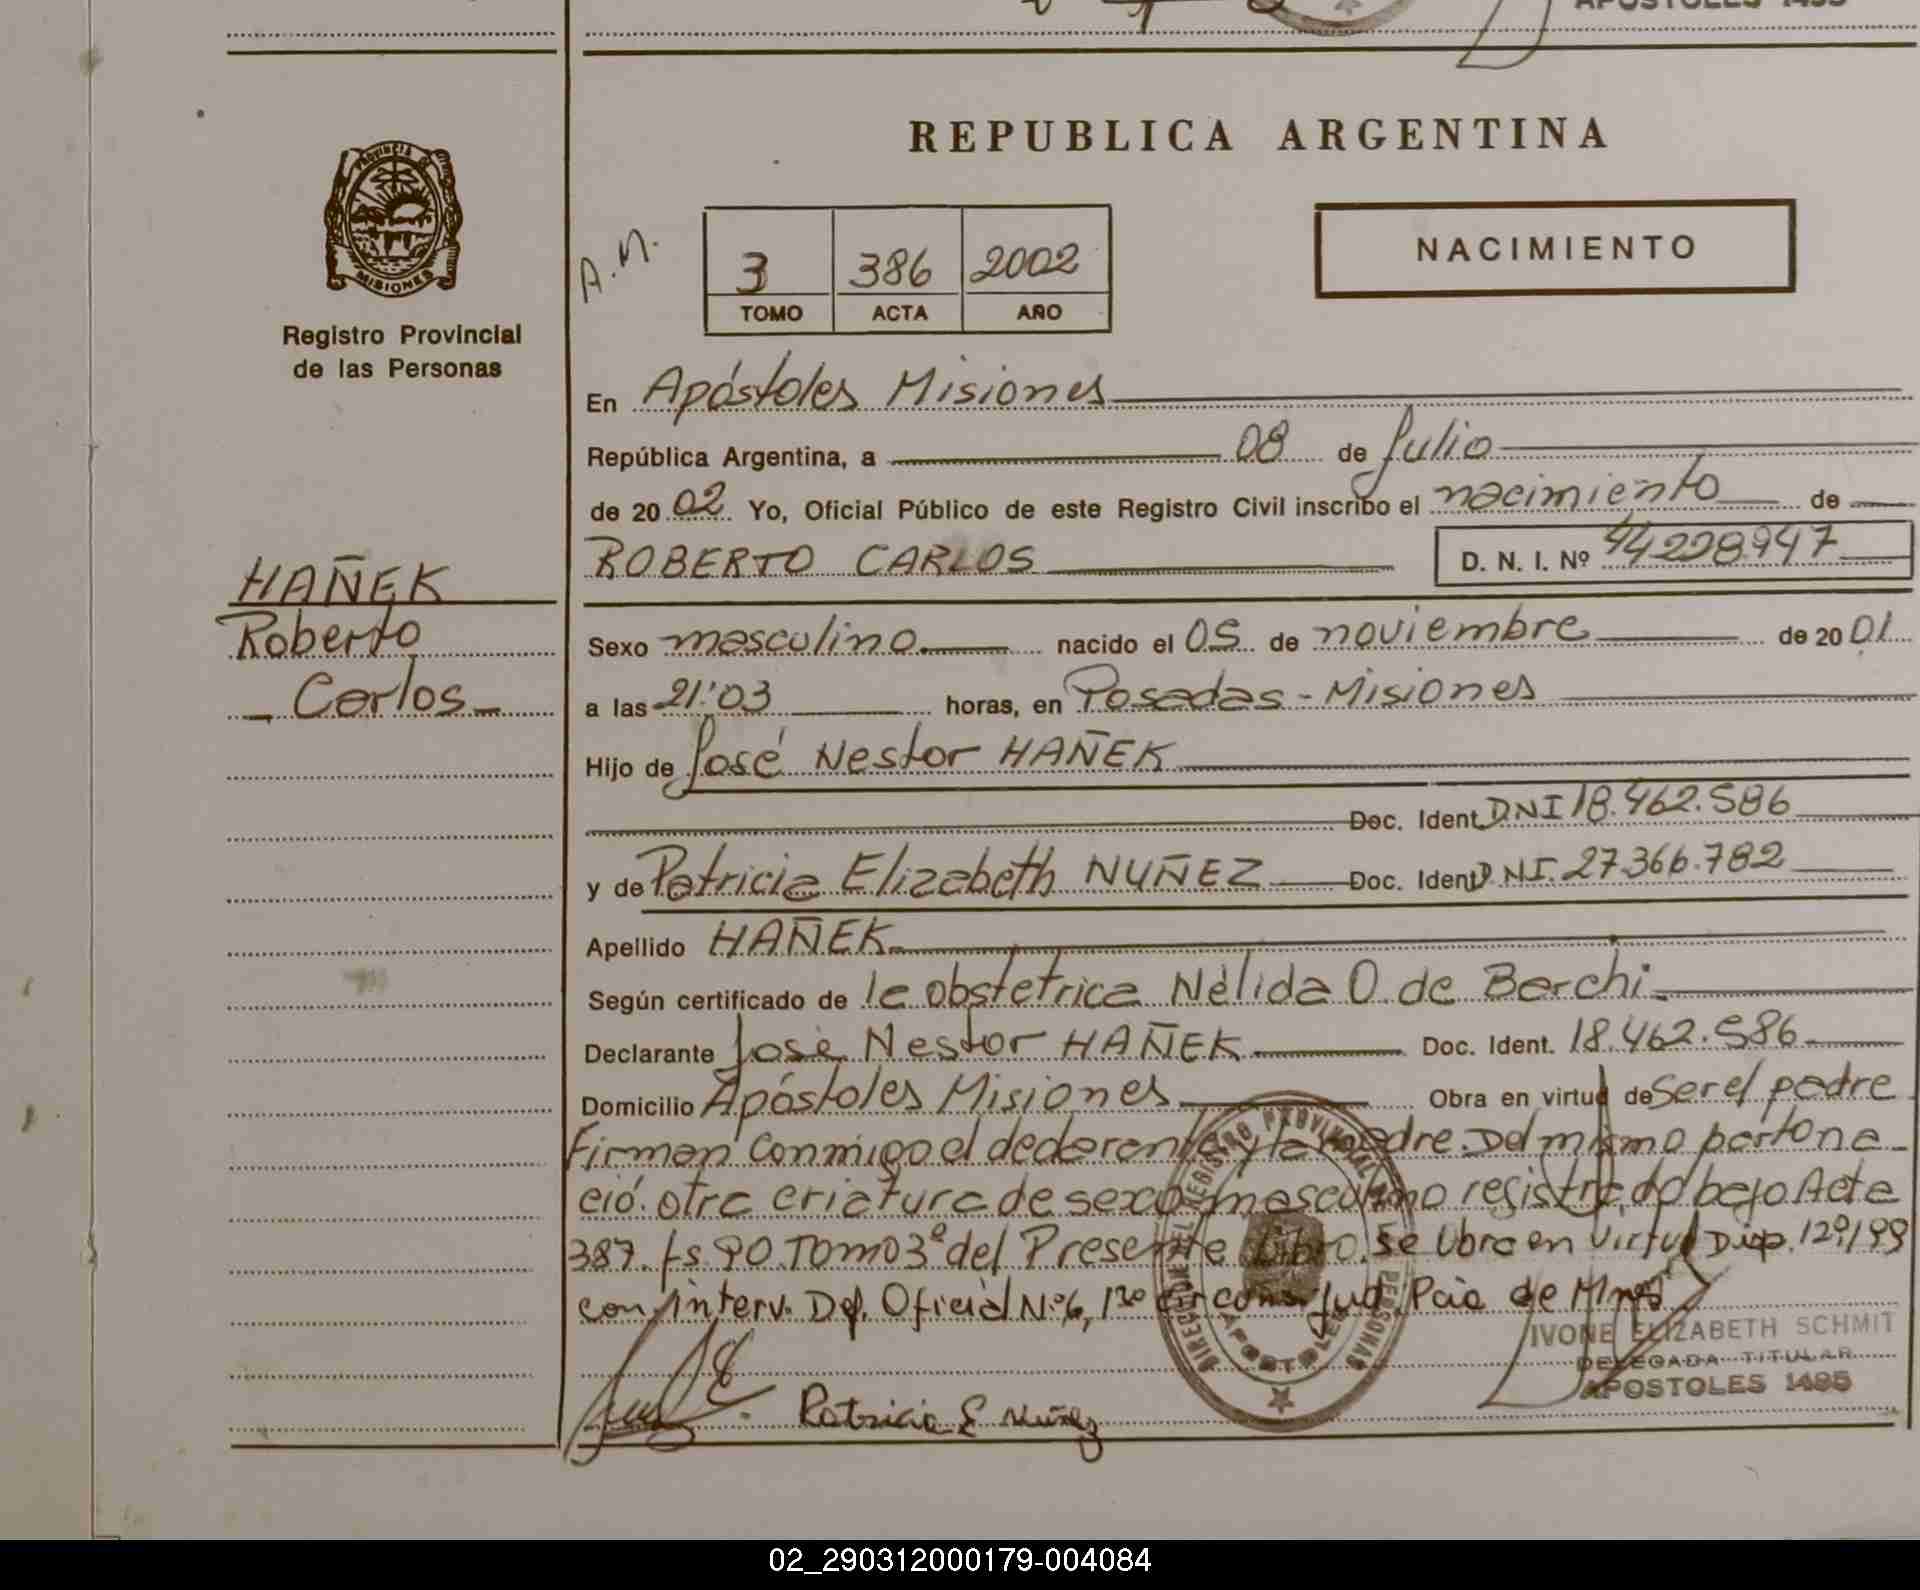 APOSTOLES 1495
REPUBLICA ARGENTINA
PROVINCIA DE
MISIONES
Registro Provincial
de las Personas
A.M.
3 386 2002
TOMO ACTA AÑO
NACIMIENTO
En Apóstoles Misiones
República Argentina, a 08 de Julio
de 2002 Yo, Oficial Público de este Registro Civil inscribo el nacimiento de
ROBERTO CARLOS D. N. I. Nº 44228947
HAÑEK
Roberto
_ Carlos _
Sexo masculino nacido el 05 de noviembre de 2001
a las 21:03 horas, en Posadas - Misiones
Hijo de José Nestor HAÑEK
Doc. Ident. DNI 18.462.586
y de Patricia Elizabeth NUÑEZ Doc. Ident. DNI. 27.366.782
Apellido HAÑEK
Según certificado de la obstetrica Nélida O. de Barchi
Declarante José Nestor HAÑEK Doc. Ident. 18.462.586
Domicilio Apóstoles Misiones Obra en virtud de ser el padre
Firman conmigo el declarante y la madre. Del mismo parto na
ció otra criatura de sexo masculino registrado bajo Acta
387. fs. 90. Tomo 3º del Presente Libro. Se Obra en Virtud Disp. 129/99
con interv. Def. Oficial Nº 6, 1ra circuns. Jud. Pcia de Mnes
DIRECCION DEL REGISTRO PROVINCIAL DE LAS PERSONAS
APOSTOLES
IVONE ELIZABETH SCHMIT
DELEGADA TITULAR
APOSTOLES 1495
Patricia E Nuñez
02_290312000179-004084